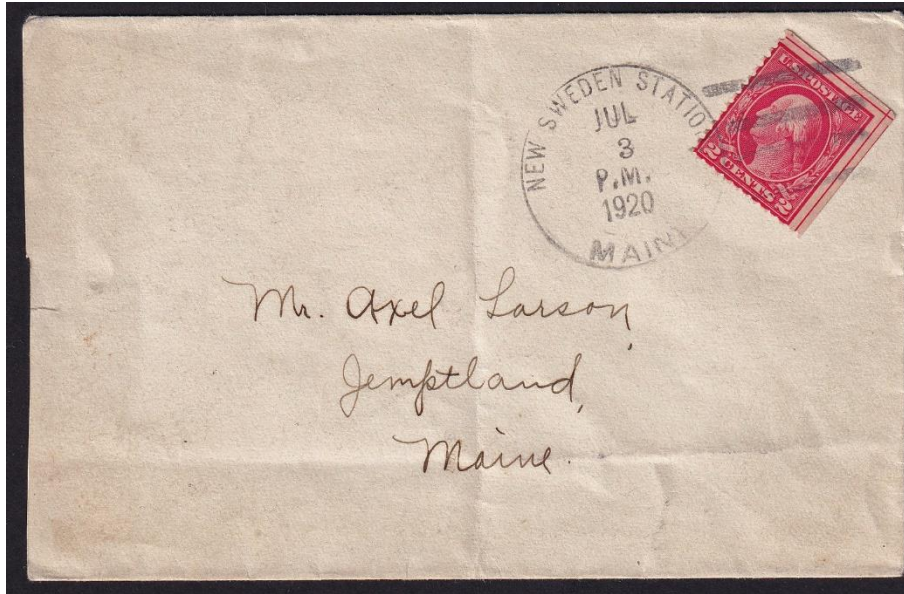 NEW SWEDEN STATION
JUL
3
P.M.
1920
MAINE
U.S. POSTAGE
2 CENTS 2
Mr. Axel Larson,
Jemptland,
Maine.